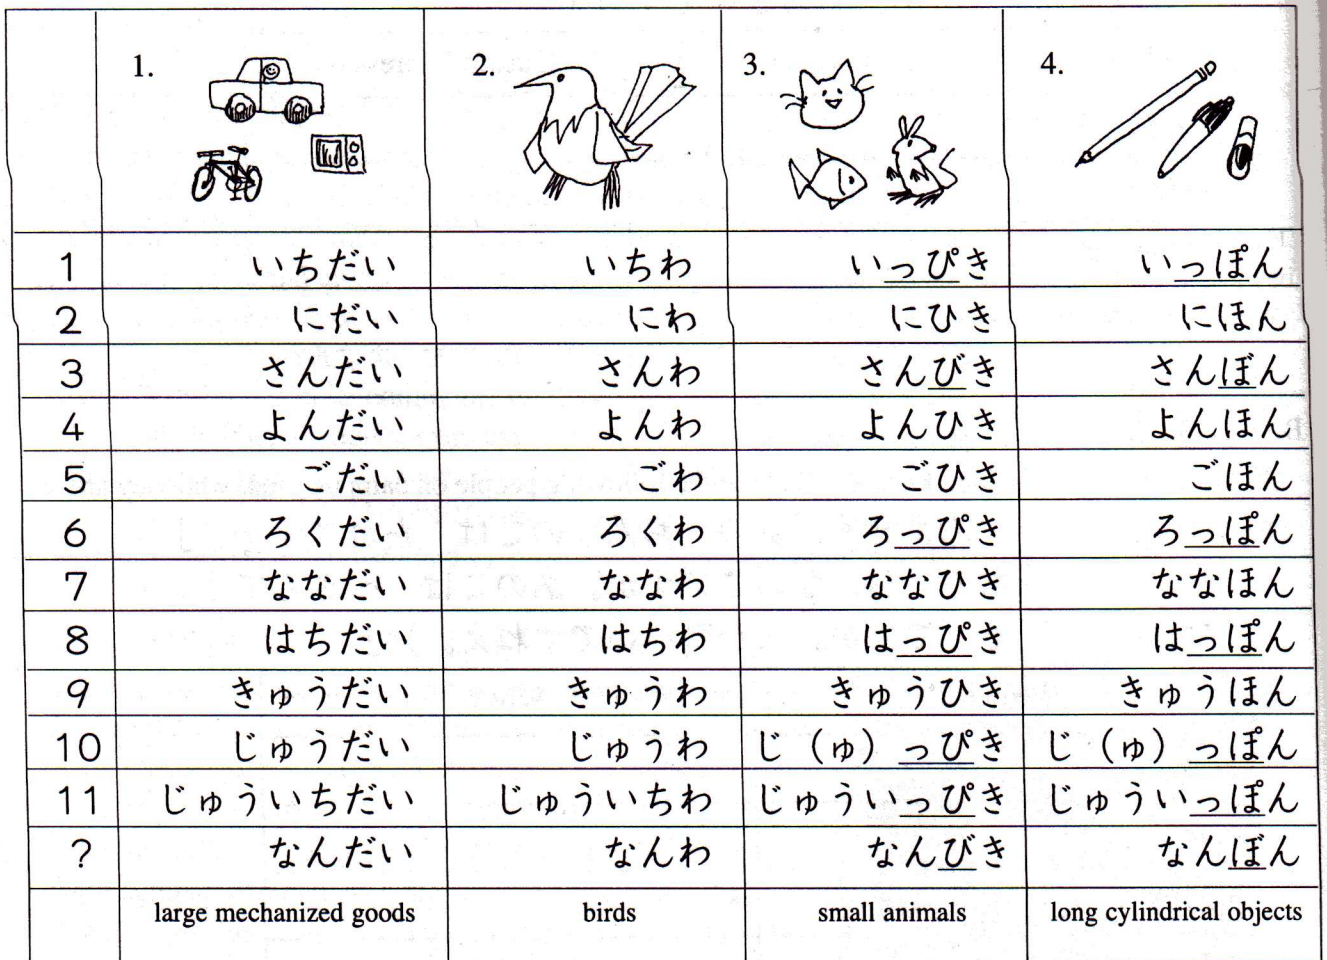 1. 2. 3. 4.
1 いちだい いちわ いっぴき いっぽん
2 にだい にわ にひき にほん
3 さんだい さんわ さんびき さんぼん
4 よんだい よんわ よんひき よんほん
5 ごだい ごわ ごひき ごほん
6 ろくだい ろくわ ろっぴき ろっぽん
7 ななだい ななわ ななひき ななほん
8 はちだい はちわ はっぴき はっぽん
9 きゅうだい きゅうわ きゅうひき きゅうほん
10 じゅうだい じゅうわ じ(ゅ)っぴき じ(ゅ)っぽん
11 じゅういちだい じゅういちわ じゅういっぴき じゅういっぽん
? なんだい なんわ なんびき なんぼん
large mechanized goods birds small animals long cylindrical objects